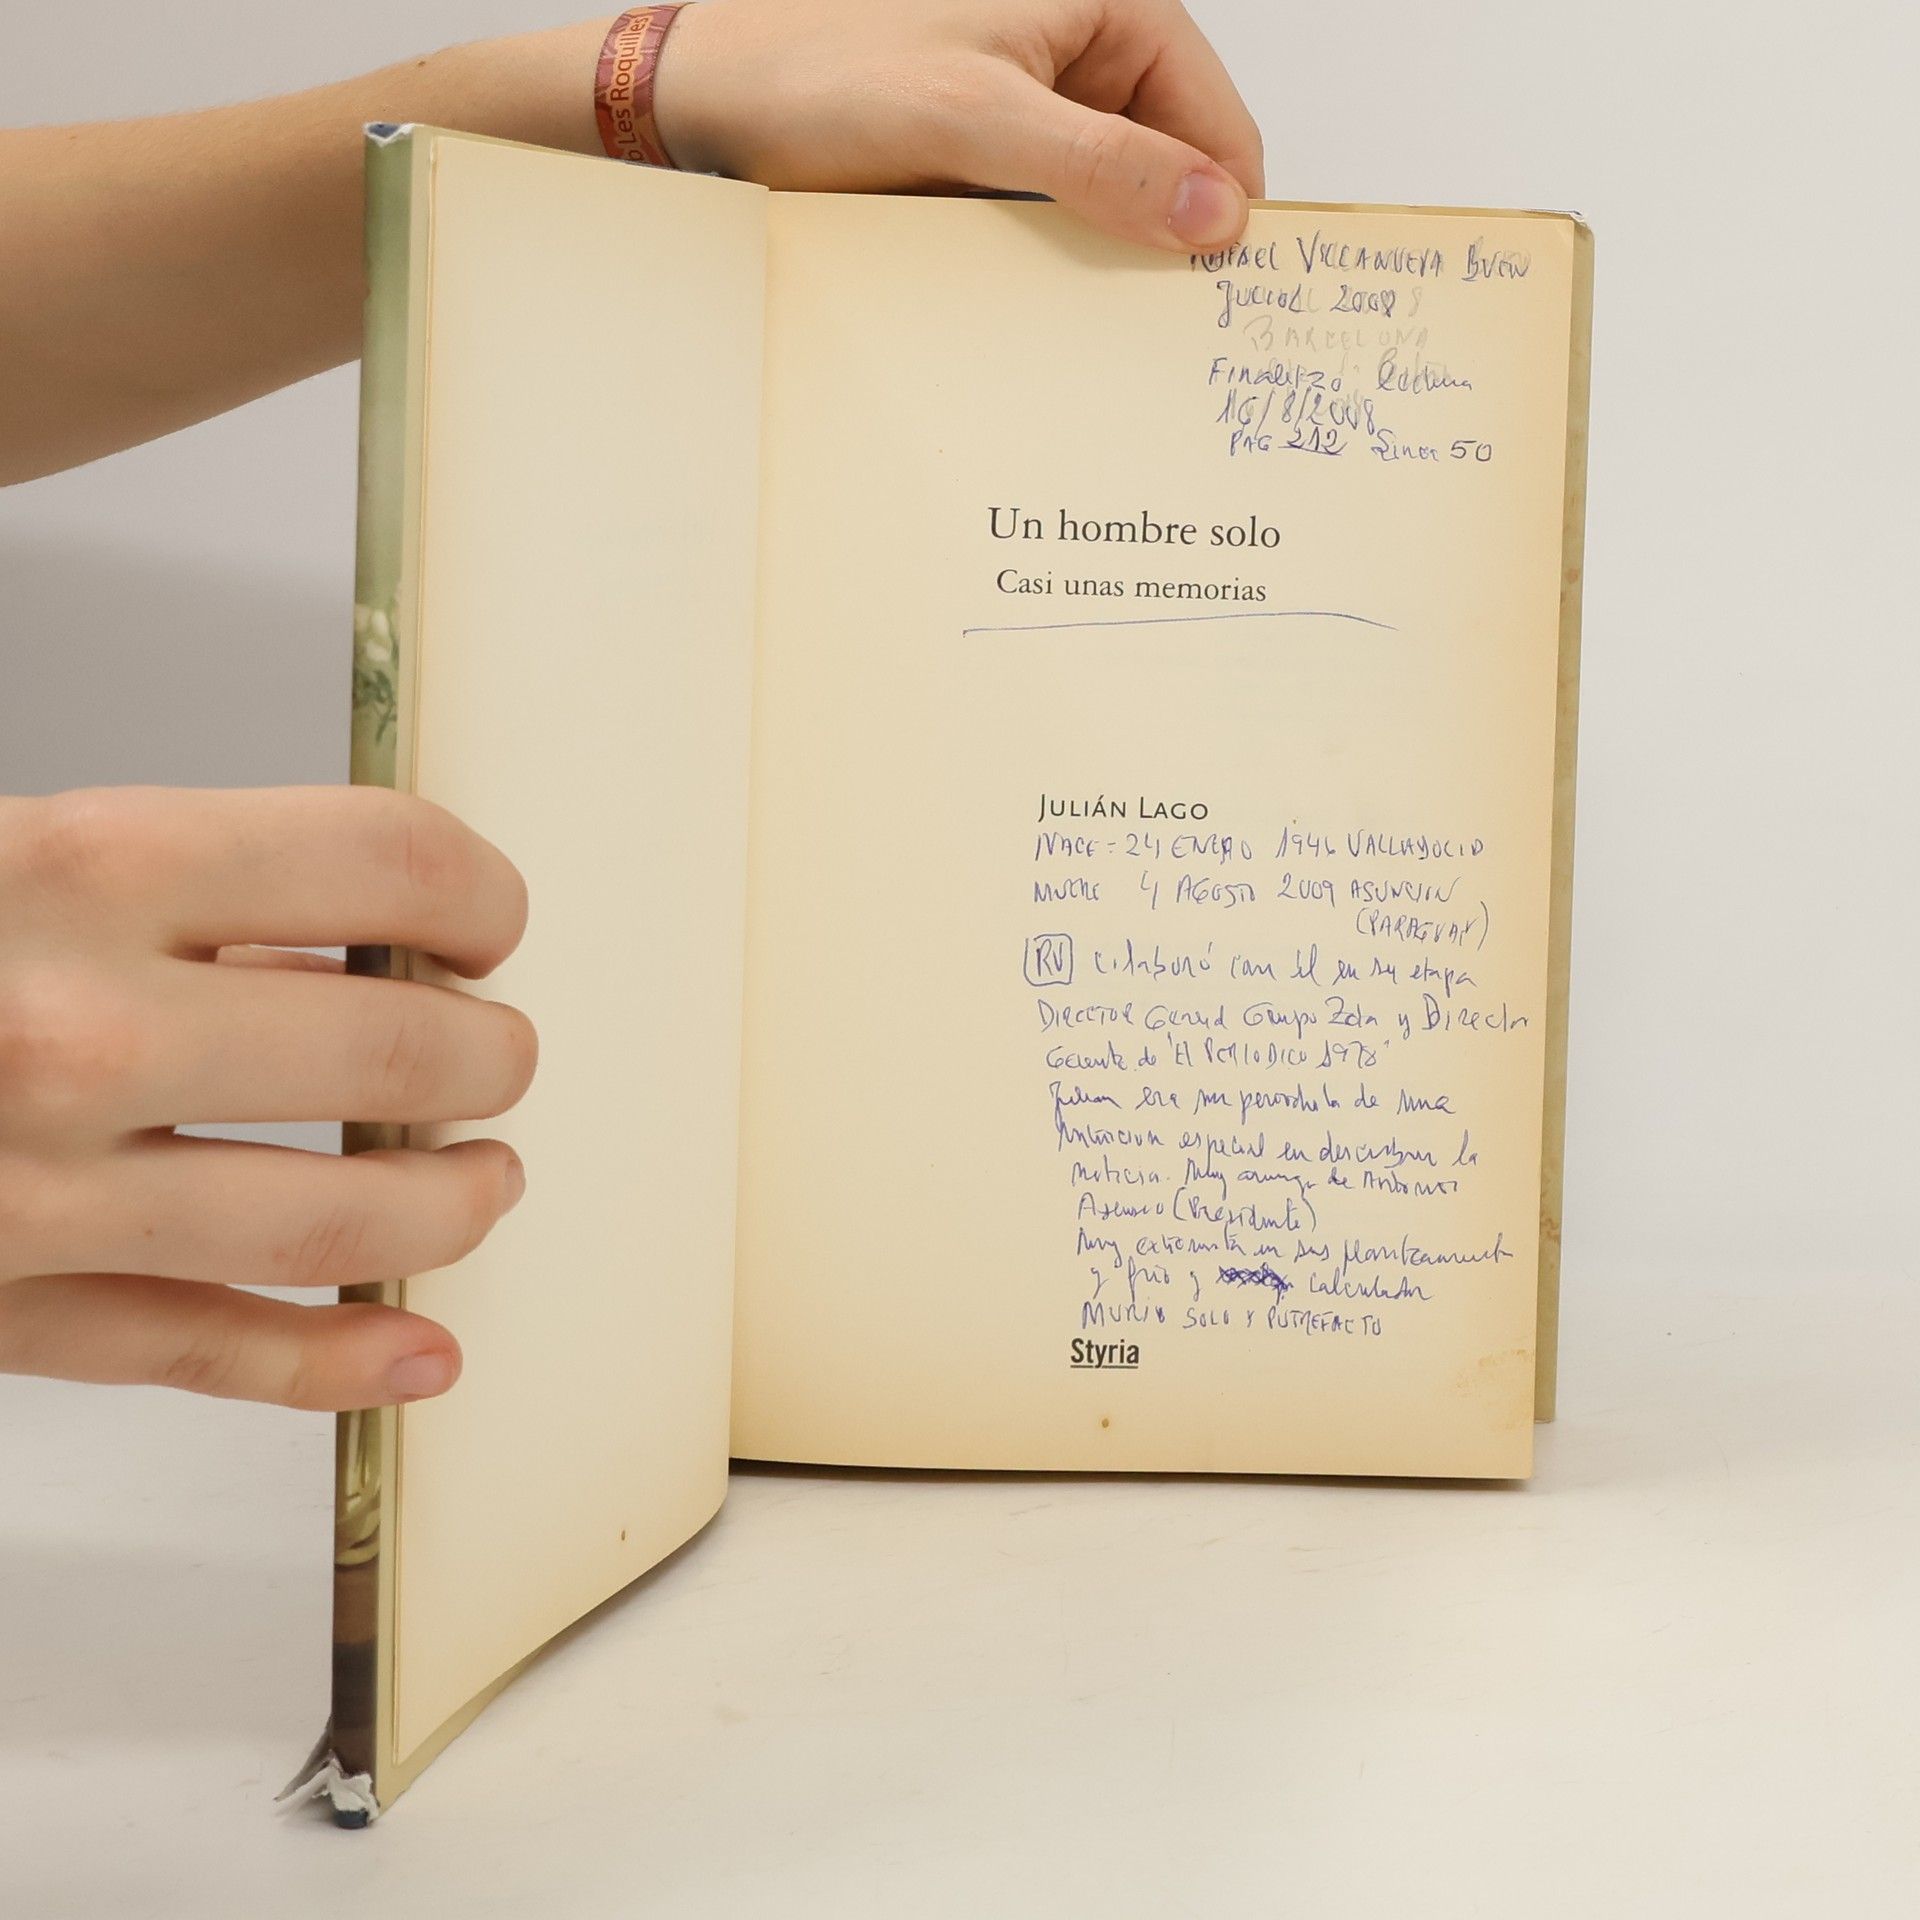 b Les Roquilles
RAFAEL VILLANUEVA BUEN
JULIOL 2008
BARCELONA
Finalitzo lectura
16/8/2008
PAG 212 Linea 50
Un hombre solo
Casi unas memorias
JULIÁN LAGO
NACE = 24 ENERO 1946 VALLADOLID
MUERE 4 AGOSTO 2009 ASUNCION
(PARAGUAY)
RV colaboró con él en su etapa
DIRECTOR General Grupo Zeta y Director
Gerente de "El PERIODICO 1978"
Julian era un periodista de una
intuicion especial en descubrir la
noticia. Muy amigo de Antonio
Asensio (Presidente)
Muy en sus planteamientos
y frio y calculador
MURIO SOLO Y PUTREFACTO
Styria